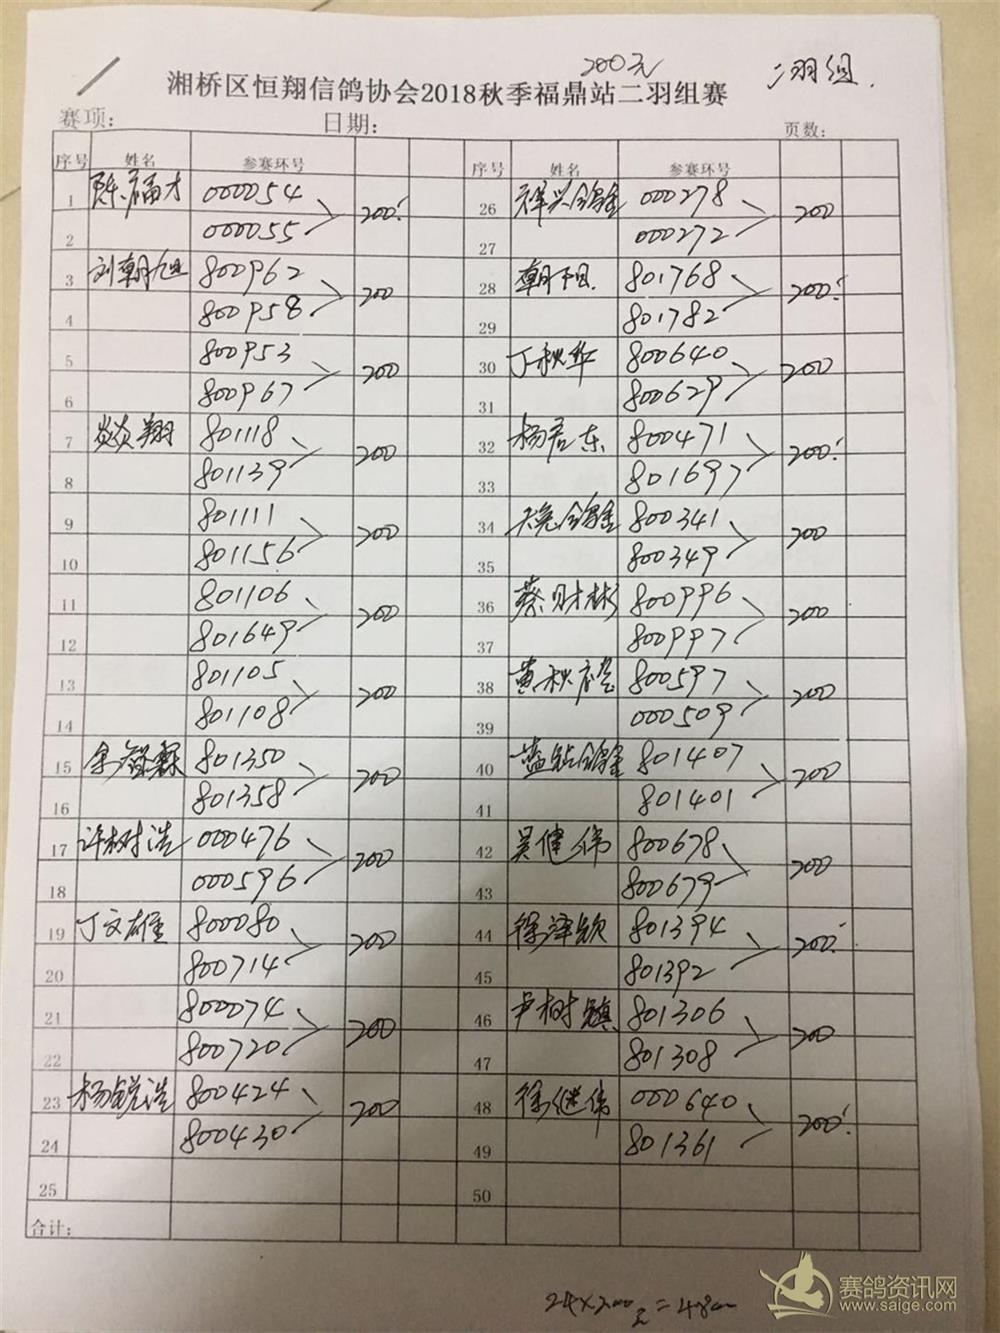 200元
二羽组.
湘桥区恒翔信鸽协会2018秋季福鼎站二羽组赛
赛项: 日期: 页数:
序号 姓名 参赛环号 序号 姓名 参赛环号
1 陈福才 000054 200. 26 祥兴鸽舍 000278 200
2 000055 27 000272
3 刘朝旭 800962 200 28 朝阳. 801768 200.
4 800958 29 801782
5 800953 200 30 丁秋华 800640 200
6 800967 31 800629
7 炎翔 801118 200 32 杨东 800471 200.
8 801139 33 801697
9 801111 200 34 800341 200
10 801156 35 800349
11 801106 200 36 蔡财彬 800996 200
12 801649 37 800997
13 801105 200 38 黄秋 800597 200
14 801108 39 000509
15 余霖 801350 200 40 蓝鸽舍 801407 200
16 801358 41 801401
17 许树浩 000476 200 42 吴健伟 800678 200
18 000596 43 800679
19 丁文雄 800080 200 44 徐泽颖 801394 200.
20 800714 45 801392
21 800074 200 46 尹树镇 801306 200
22 800720 47 801308
23 杨锐浩 800424 200 48 徐继伟 000640 200.
24 800430 49 801361
25 50
合计:
24×200=4800
赛鸽资讯网
www.saige.com